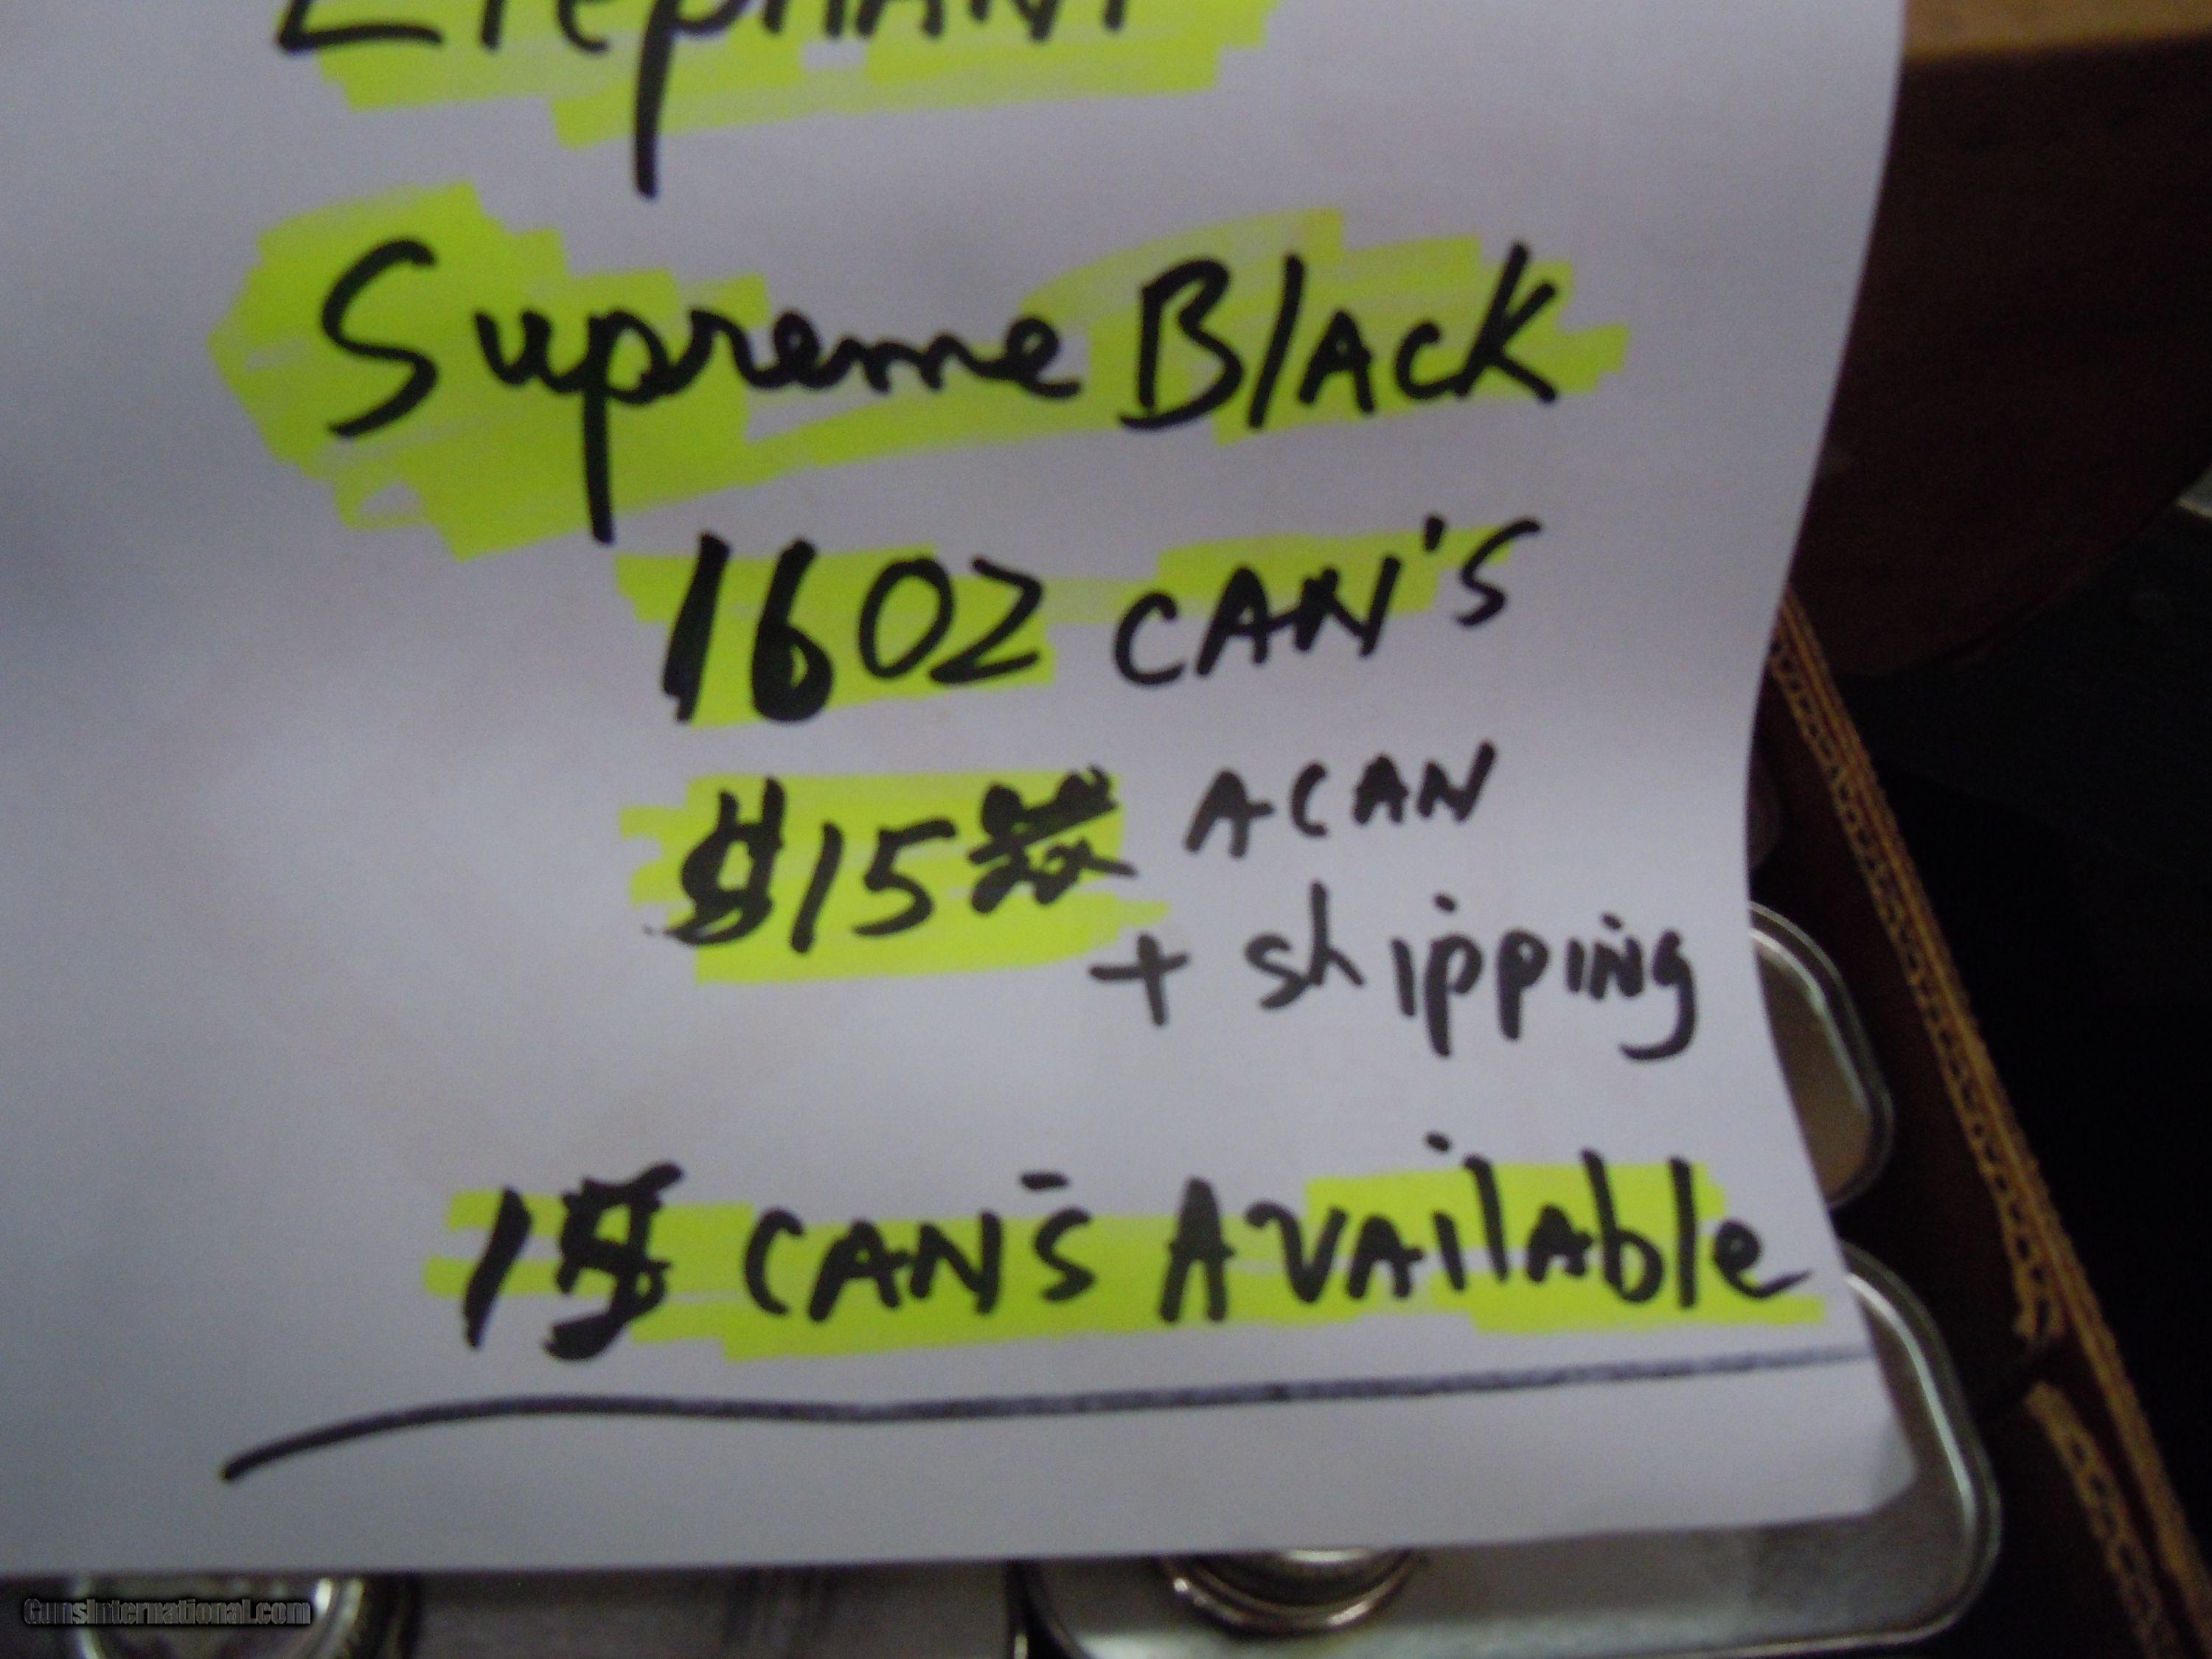 Elephant
Supreme Black
16 OZ CAN'S
$15 A CAN
+ shipping
CAN'S Available
GunsInternational.com